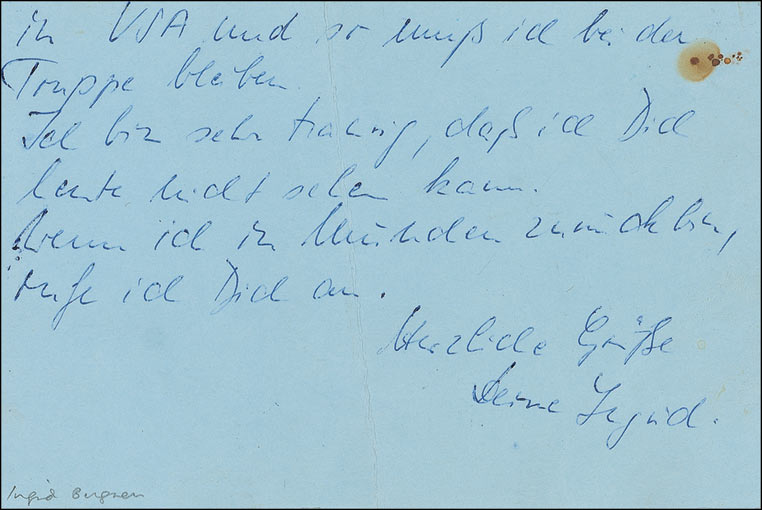 in USA und so muß ich bei der
Truppe bleiben.
Ich bin sehr traurig, daß ich Dich
heute nicht sehen kann.
Wenn ich in München zurück bin,
rufe ich Dich an.
Herzliche Grüße
Deine Ingrid.
Ingrid